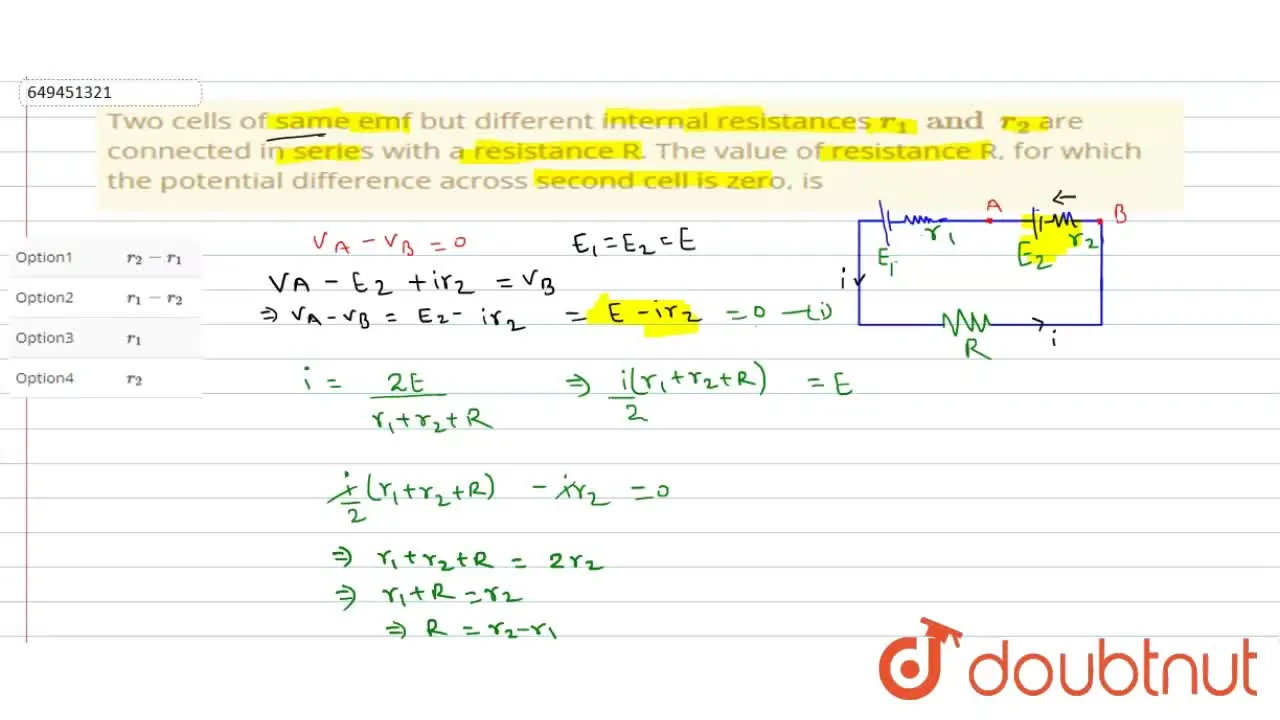 649451321
Two cells of same emf but different internal resistances r₁ and r₂ are
connected in series with a resistance R. The value of resistance R, for which
the potential difference across second cell is zero, is
Option1 r₂ − r₁
Option2 r₁ − r₂
Option3 r₁
Option4 r₂
V_A − V_B = 0
E₁ = E₂ = E
V_A − E₂ + ir₂ = V_B
⇒ V_A − V_B = E₂ − ir₂ = E − ir₂ = 0 —(i)
i = 2E / r₁ + r₂ + R ⇒ i(r₁ + r₂ + R) / 2 = E
i/2 (r₁ + r₂ + R) − ir₂ = 0
⇒ r₁ + r₂ + R = 2r₂
⇒ r₁ + R = r₂
⇒ R = r₂ − r₁
A
←
B
r₁
r₂
E₁
E₂
i
R
i
doubtnut